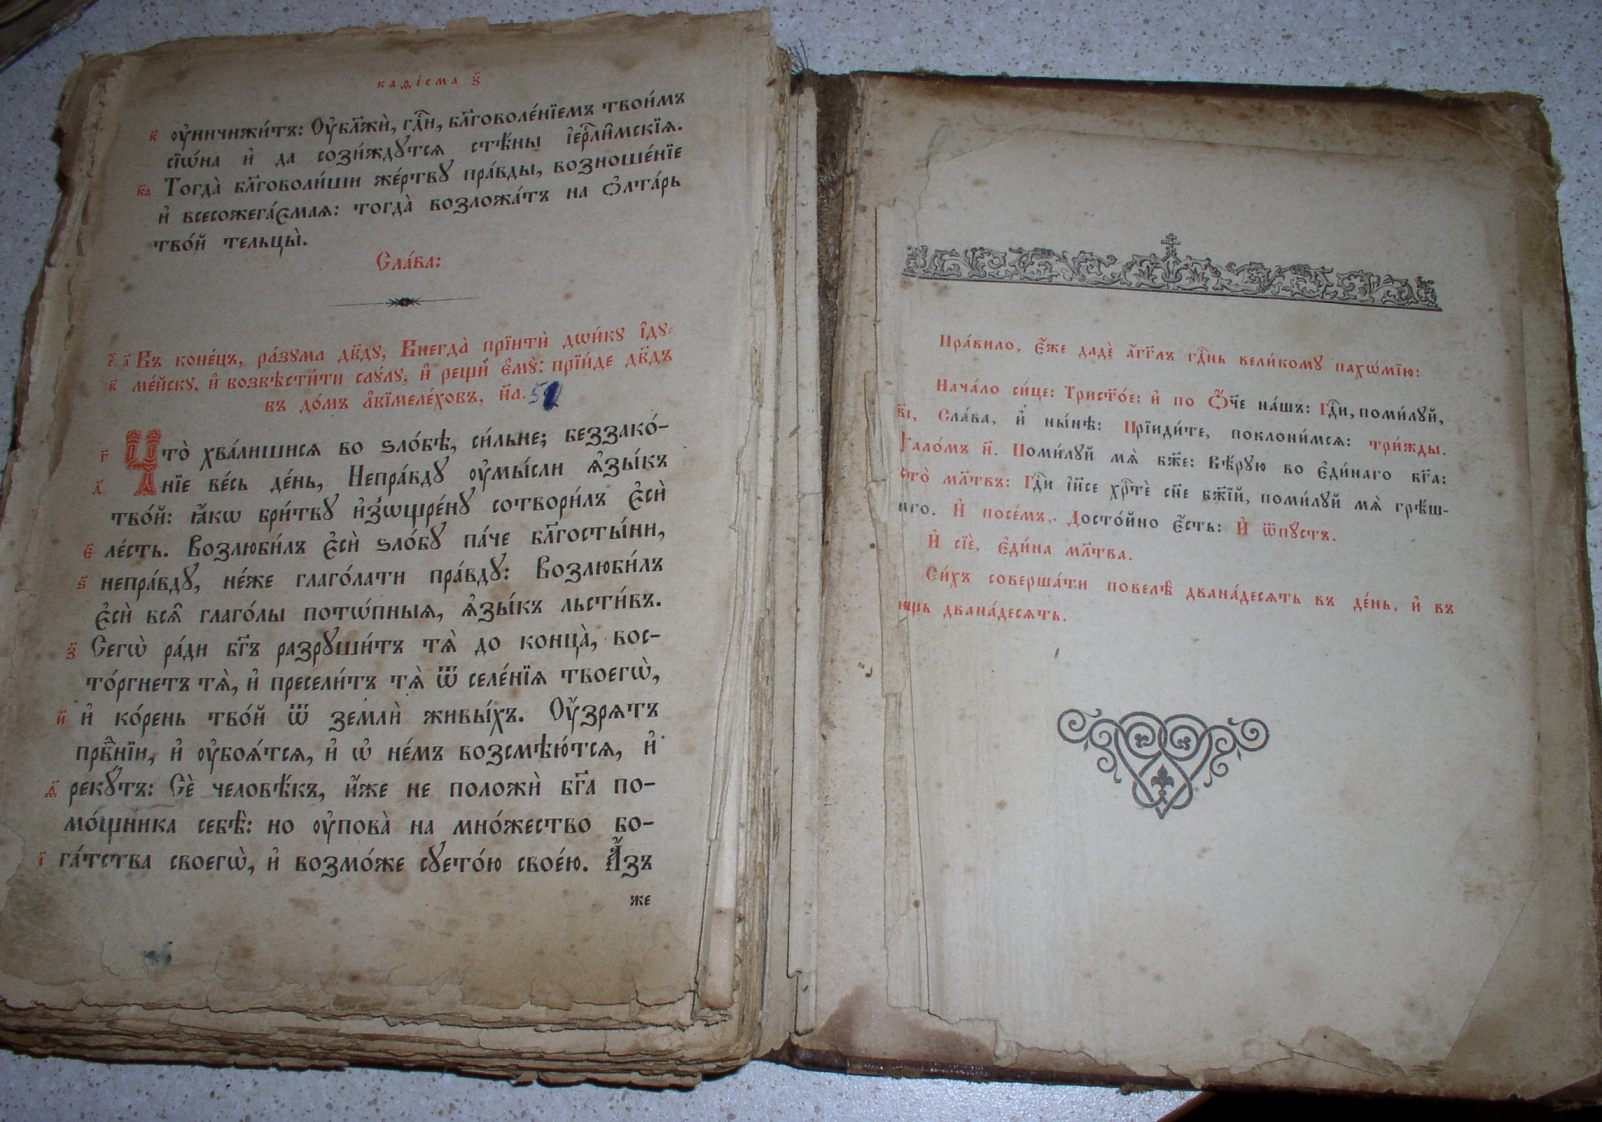 каѳі́сма з҃
к҃ ᲂу҆ничижи́тъ: Оу҆блж҃ѝ, гдⷭ҇и, бл҃говоле́нїемъ твои́мъ
сїѡ́на и҆ да сози́ждꙋтсѧ стѣ́ны і҆ерⷭ҇ли́мскїѧ.
к҃а Тогда̀ бл҃говоли́ши же́ртвꙋ пра́вды, возноше́нїе
и҆ всесожега́ємаѧ: тогда̀ возложа́тъ на ѻ҆лта́рь
тво́й тельцы̀.
Сла́ва:
а҃ Въ коне́цъ, ра́зꙋма дв҃дꙋ, Внегда̀ прїитѝ дѡи́кꙋ і҆дꙋ-
в҃ ме́йскꙋ, и҆ возвѣсти́ти саꙋ́лꙋ, и҆ рещи́ є҆мꙋ̀: прїи́де дв҃дъ
въ до́мъ а҆вїмеле́ховъ, н҃а. 51
г҃ Что̀ хва́лишисѧ во ѕло́бѣ, си́льне; беззако́-
д҃ нїе ве́сь де́нь, Непра́вдꙋ ᲂу҆мы́сли ѧ҆зы́къ
тво́й: ꙗ҆́кѡ бри́твꙋ и҆зѡщре́нꙋ сотвори́лъ є҆сѝ
є҃ ле́сть. Возлюби́лъ є҆сѝ ѕло́бꙋ па́че бл҃госты́ни,
ѕ҃ непра́вдꙋ, не́же глаго́лати пра́вдꙋ: Возлюби́лъ
є҆сѝ всѧ̑ глаго́лы пото́пныѧ, ѧ҆зы́къ льсти́въ.
з҃ Сегѡ̀ ра́ди бг҃ъ разрꙋши́тъ тѧ̀ до конца̀, вос-
то́ргнетъ тѧ̀, и҆ пресели́тъ тѧ̀ ѿ селе́нїѧ твоегѡ̀,
и҃ и҆ ко́рень тво́й ѿ землѝ живы́хъ. Оу҆́зрѧтъ
првⷣнїи, и҆ ᲂу҆боѧ́тсѧ, и҆ ѡ҆ не́мъ возсмѣю́тсѧ, и҆
ѳ҃ рекꙋ́тъ: Сѐ человѣ́къ, и҆́же не положѝ бг҃а по-
мо́щника себѣ̀: но ᲂу҆пова̀ на мно́жество бо-
і҃ га́тства своегѡ̀, и҆ возмо́же сꙋето́ю свое́ю. А҆́зъ
же
Пра́вило, є҆́же дадѐ а҆́гг҃лъ гдⷭ҇нь вели́комꙋ пахѡ́мїю:
Нача́ло си́це: Трист҃о́е: и҆ по Ѻ҆́ч҃е на́шъ: Гдⷭ҇и, поми́лꙋй,
в҃і, Сла́ва, и҆ ны́нѣ: Прїиди́те, поклони́мсѧ: три́жды.
Ѱало́мъ н҃. Поми́лꙋй мѧ̀ бж҃е: Вѣ́рꙋю во є҆ди́наго бг҃а:
сто̀ мл҃твъ: Гдⷭ҇и і҆и҃се хрⷭ҇тѐ сн҃е бж҃їй, поми́лꙋй мѧ̀ грѣ́ш-
наго. И҆ посе́мъ, Досто́йно є҆́сть: И҆ ѿпꙋ́стъ.
И҆ сїѐ, є҆ди́на мл҃тва.
Си́хъ соверша́ти повелѣ̀ двана́десѧть въ де́нь, и҆ въ
нощь двана́десѧть.